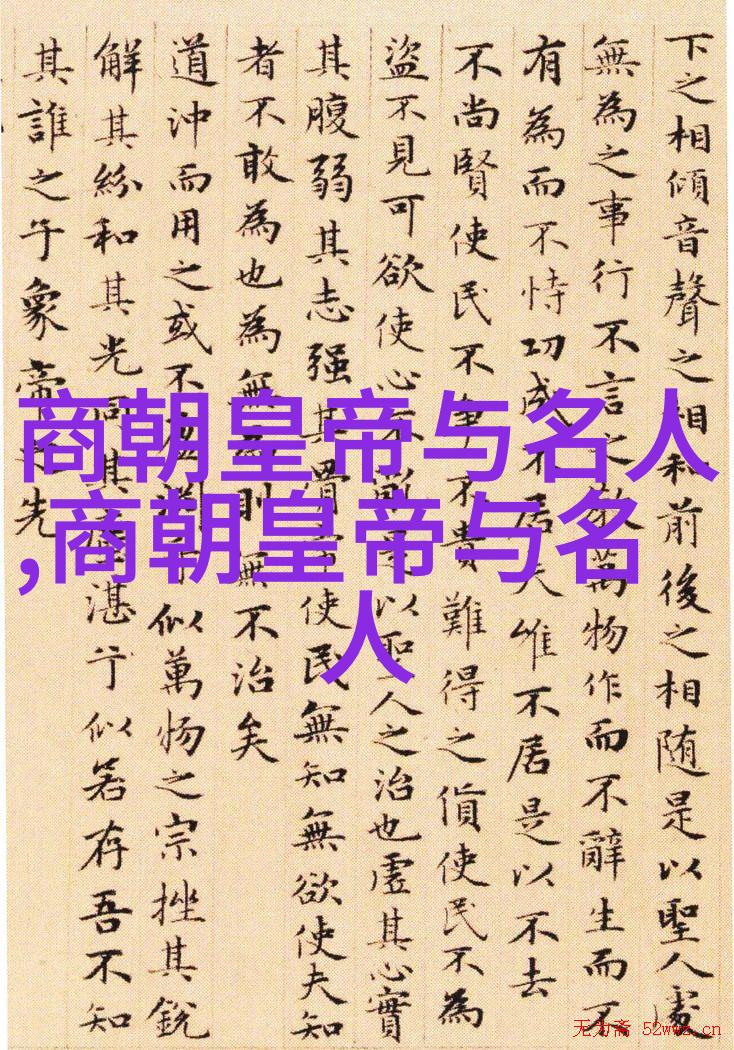 下之相傾音聲之相和前後之相随是以聖人處
無為之事行不言之教萬物作而不辭生而不
有為而不恃功成不居夫惟不居是以不去
不尚賢使民不争不貴難得之貨使民不為
盜不見可欲使心不是以聖人之治也虛其心實
其腹弱其志强其骨常使民無知無欲使夫知
者不敢為也為無為則無不治矣
道沖而用之或不盈淵乎似萬物之宗挫其銳
解其紛和其光同其塵湛乎似若存吾不知
其誰之子象帝之先
商朝皇帝与名人
,商朝皇帝与名
人
无为斋 52wwz.cn